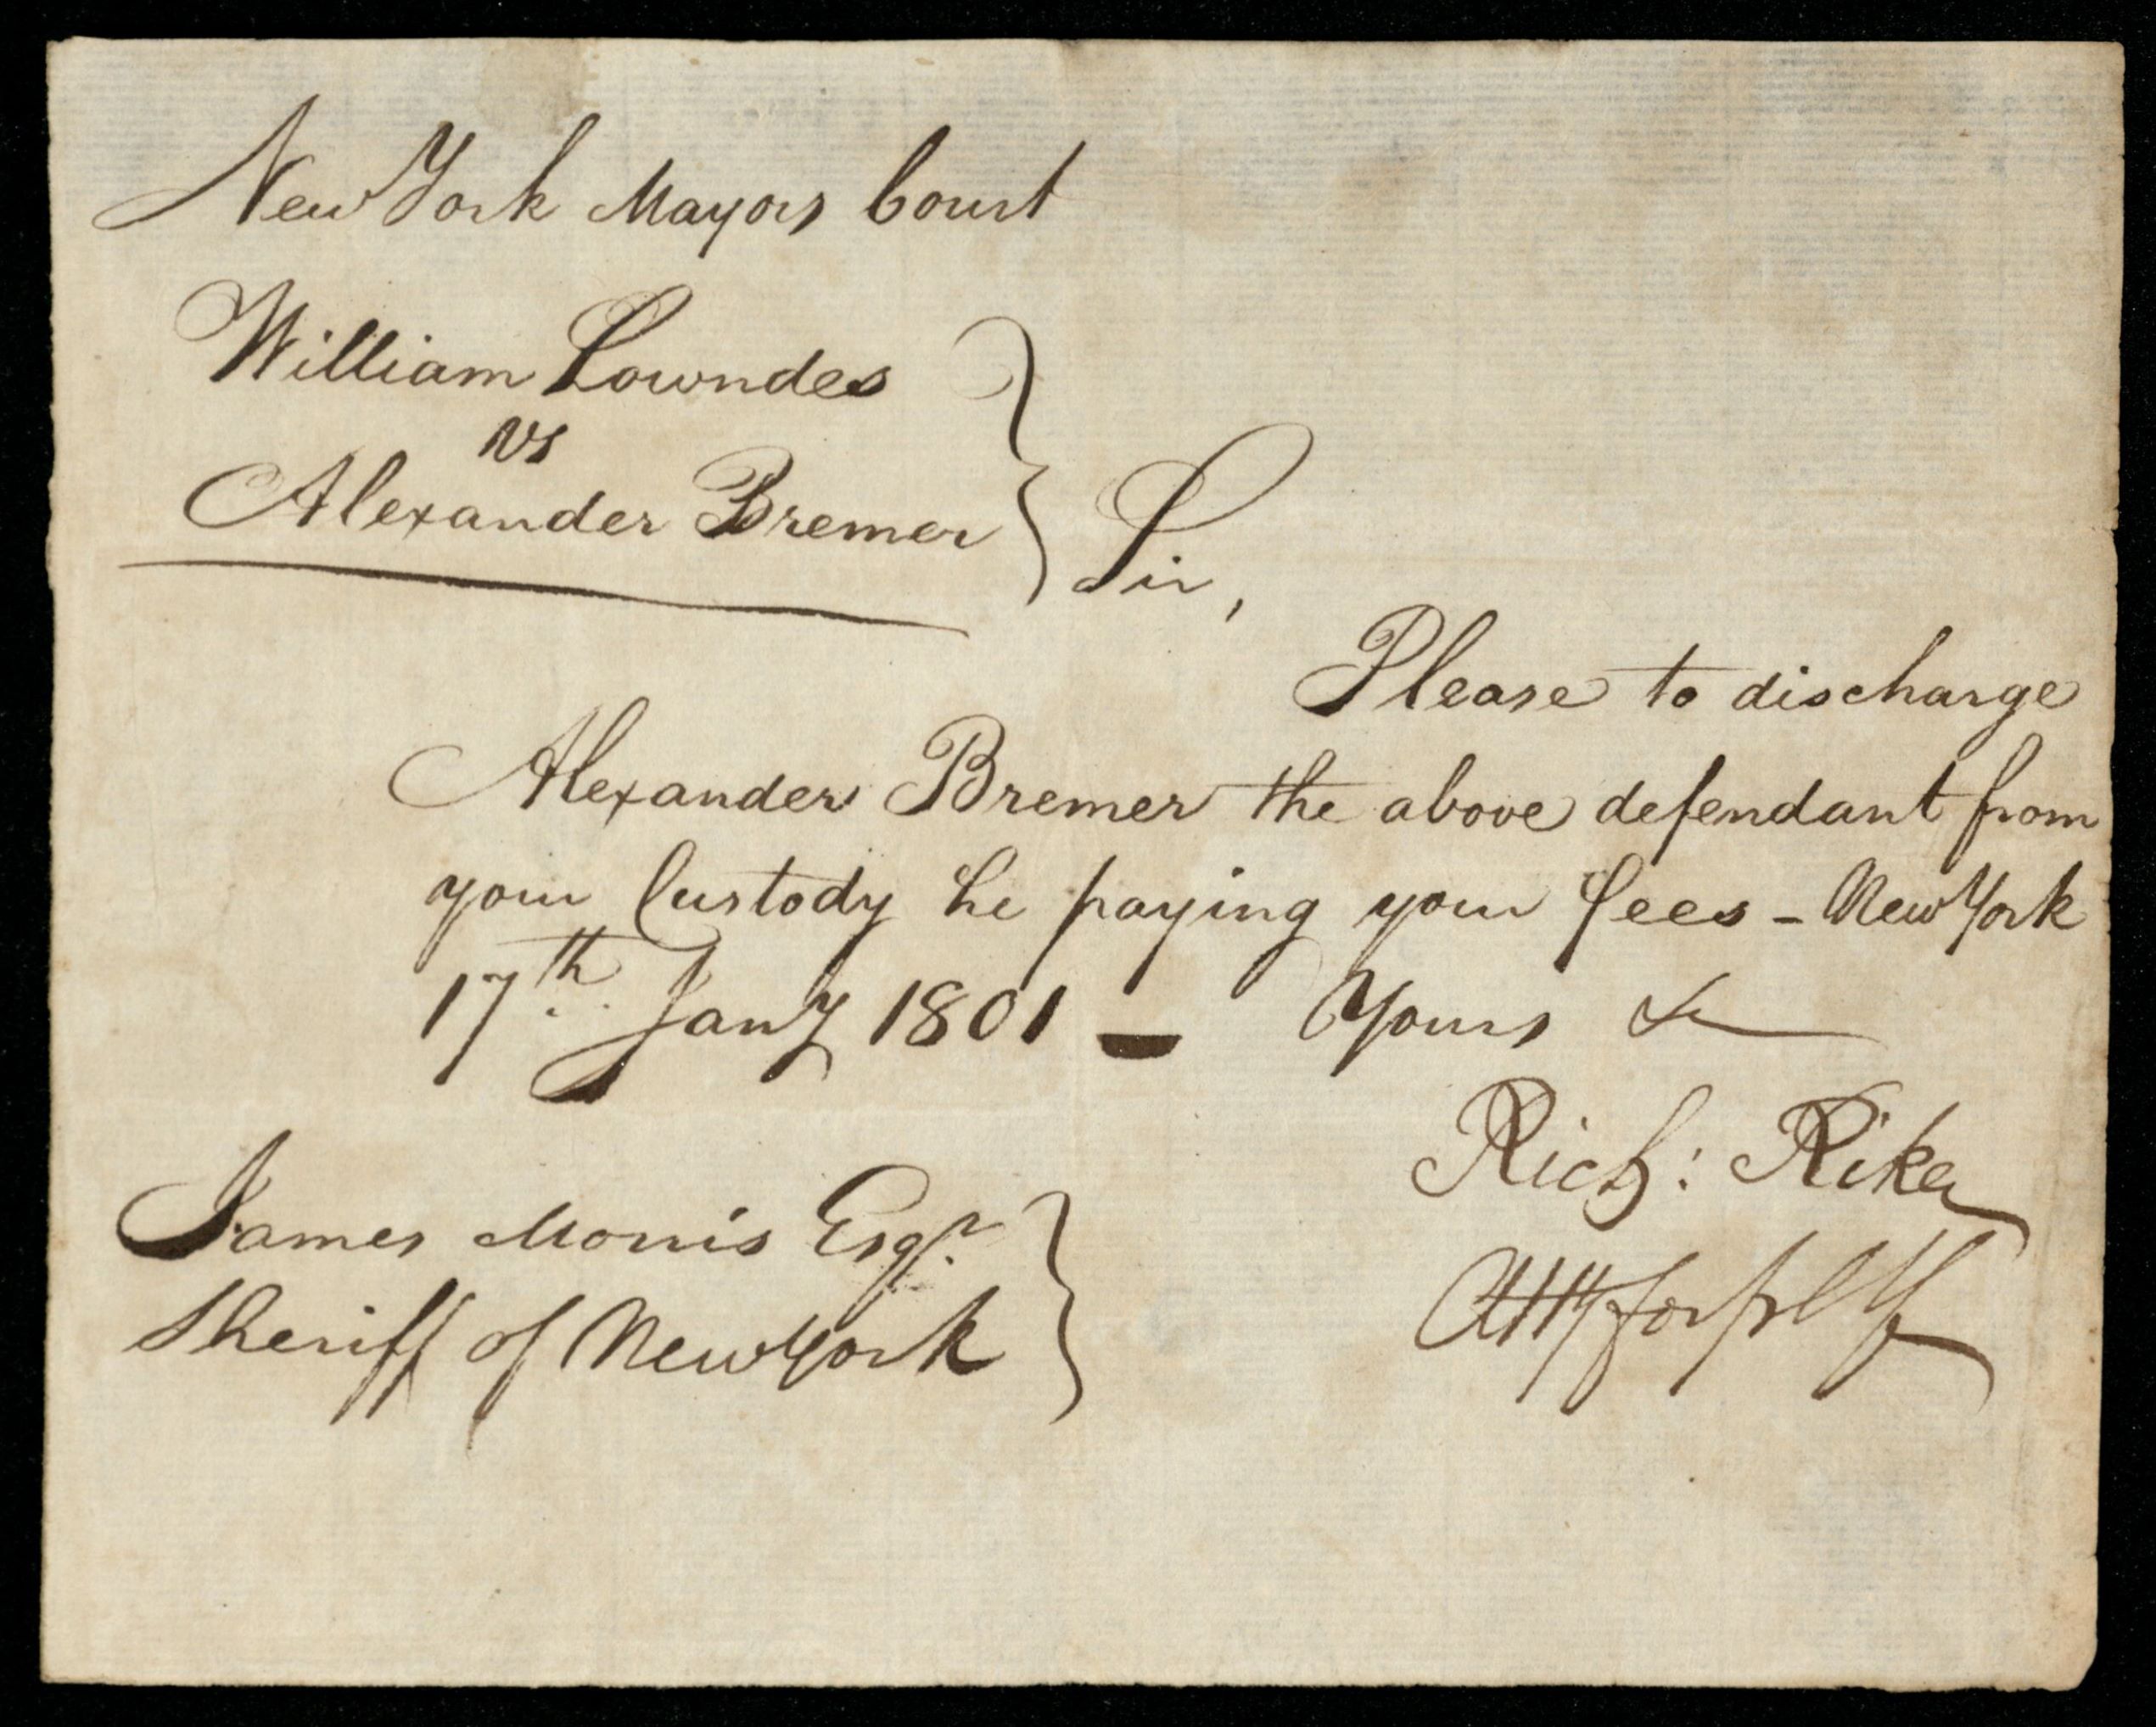 New York Mayors Court
William Lowndes
vs
Alexander Bremer
Sir,
Please to discharge
Alexander Bremer the above defendant from
your Custody he paying your fees - New York
17th Jany 1801 — Yours &
Rich: Riker
Atty for pltff
James Morris Esqr.
Sheriff of New York